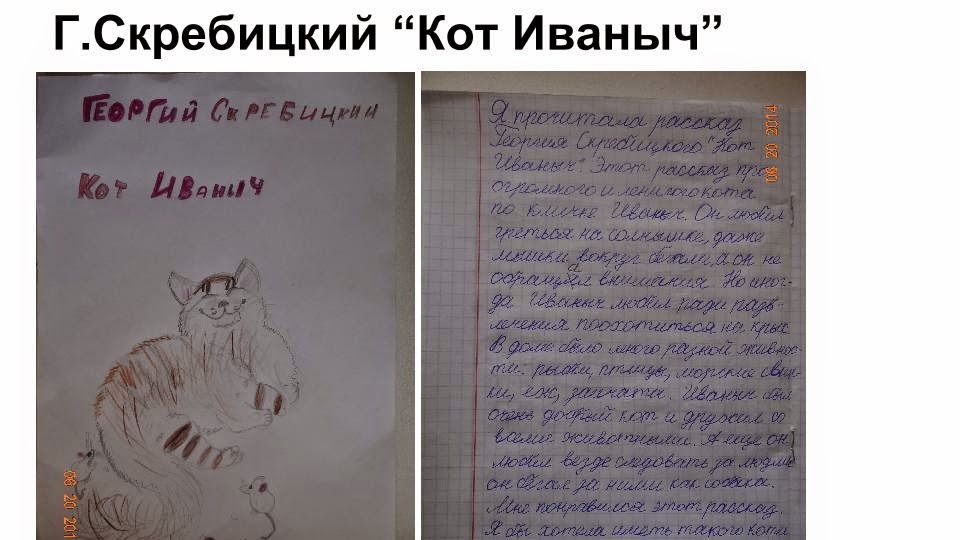 Г.Скребицкий “Кот Иваныч”
ГЕОРГИЙ СКРЕБИЦКИЙ
КОТ ИВАНЫЧ
08 20 201
Я прочитала рассказ
Георгия Скребицкого "Кот
Иваныч". Этот рассказ про
огромного и ленивого кота
по кличке Иваныч. Он любил
греться на солнышке, даже
мышки вокруг бежали, а он не
обращал внимания. Но иног-
да Иваныч любил ради разв-
лечения поохотиться на крыс.
В доме было много разной живнос-
ти: рыбки, птицы, морские свин-
ки, ёж, зайчата. Иваныч был
очень добрый кот и дружил со
всеми животными. А еще он
любил везде следовать за людьми
он бегал за ними как собака.
Мне понравился этот рассказ.
Я бы хотела иметь такого кота
08 20 2014